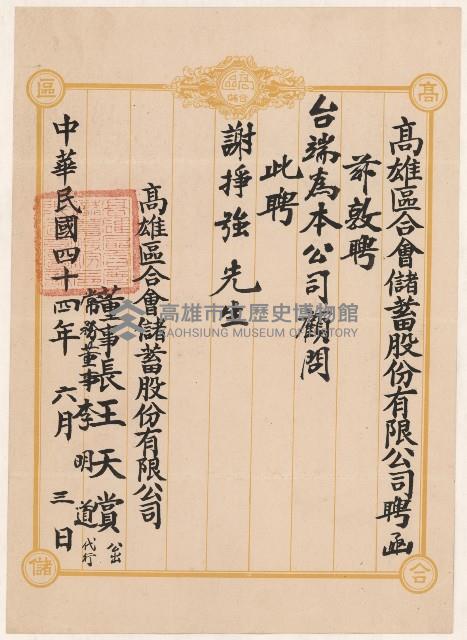 高雄區合會儲蓄股份有限公司聘函
茲敦聘
台端為本公司顧問
此聘
謝掙強先生
高雄區合會儲蓄股份有限公司
董事長王天賞公出
常務董事李明道代行
中華民國四十四年六月三日
高
區
合
儲
高雄市立歷史博物館
KAOHSIUNG MUSEUM OF HISTORY